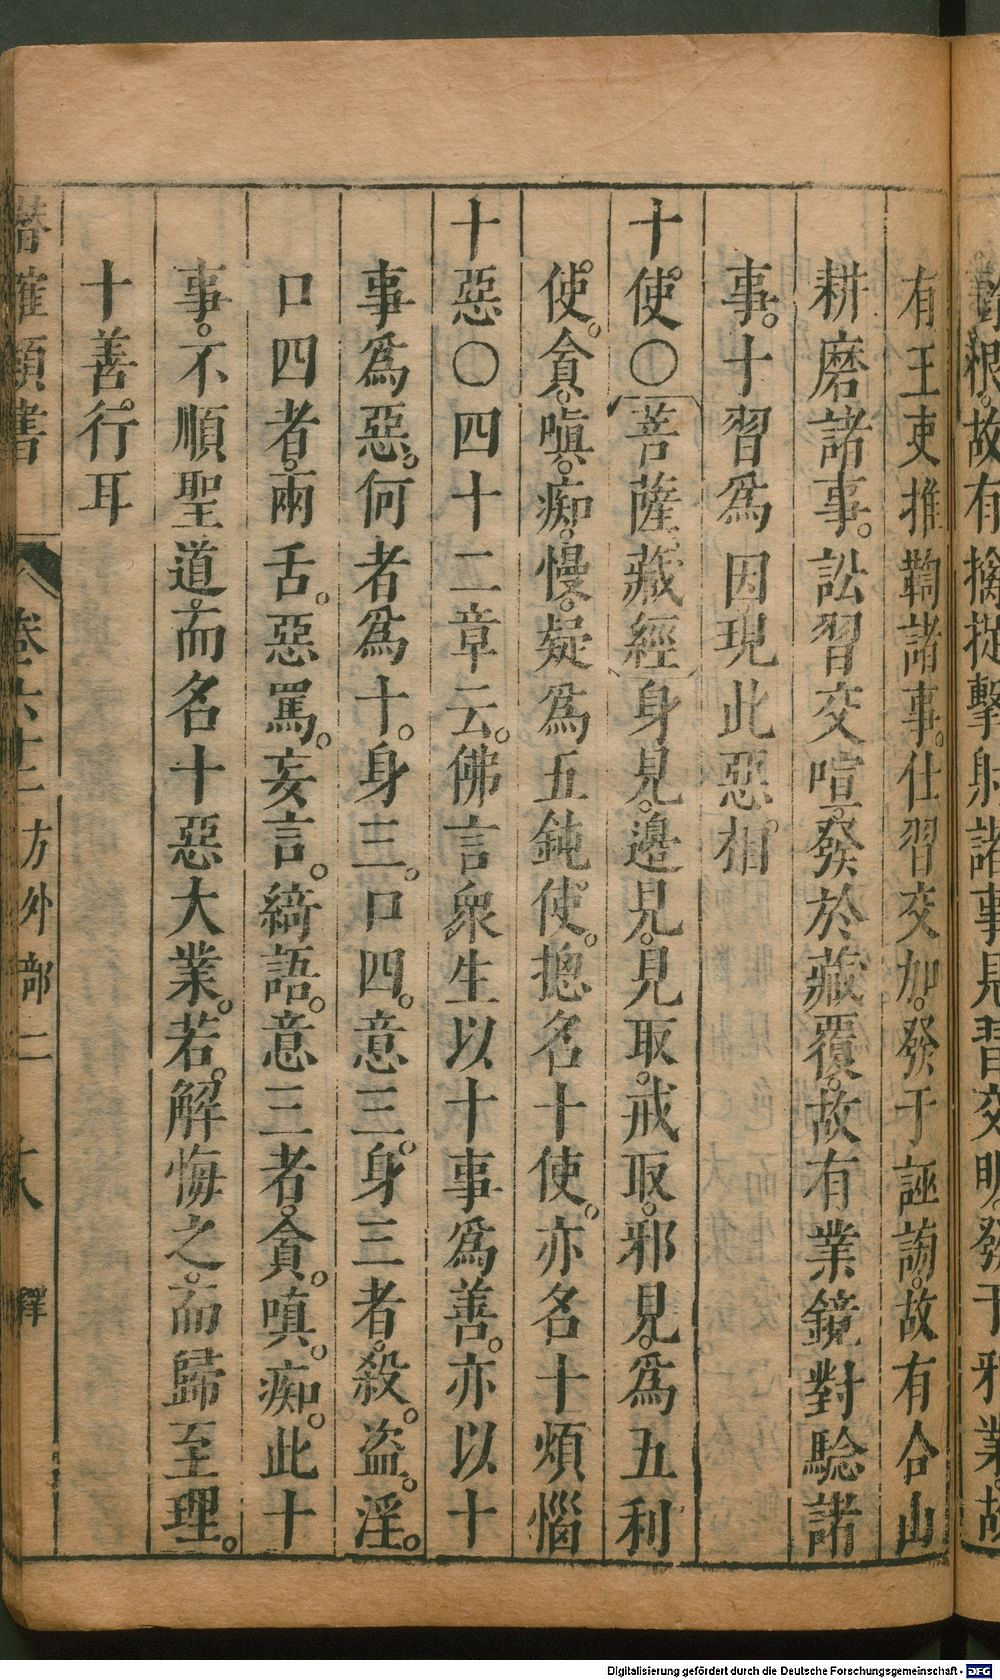 根。故有擒捉擊射諸事見習交明。發于邪業。故
有王吏推鞫諸事。仕習交加。發于誣謗。故有合山
耕磨諸事。訟習交喧。發於藏覆。故有業鏡對驗諸
事。十習爲因。現此惡相。
十使〇菩薩藏經身見。邊見。見取。戒取。邪見。爲五利
使。貪。嗔。痴。慢。疑爲五鈍使。摠名十使。亦名十煩惱
十惡〇四十二章云。佛言衆生以十事爲善。亦以十
事爲惡。何者爲十。身三。口四。意三。身三者。殺。盗。淫。
口四者。兩舌。惡罵。妄言。綺語。意三者。貪。嗔。痴。此十
事。不順聖道。而名十惡大業。若解悔之。而歸至理。
十善行耳
潛確類書 卷六十二 方外部二 十八 釋
Digitalisierung gefördert durch die Deutsche Forschungsgemeinschaft - DFG